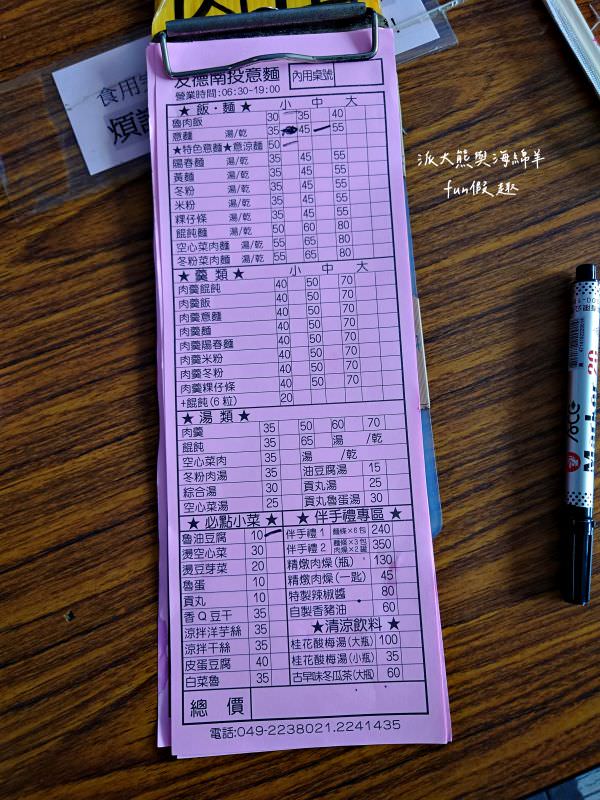 食用完
煩請
友德南投意麵
營業時間:06:30~19:00
內用桌號
★ 飯·麵 ★ 小 中 大
魯肉飯 30 35 40
意麵 湯/乾 35 45 55
★特色意麵★意涼麵 50
陽春麵 湯/乾 35 45 55
黃麵 湯/乾 35 45 55
冬粉 湯/乾 35 45 55
米粉 湯/乾 35 45 55
粿仔條 湯/乾 35 45 55
餛飩麵 湯/乾 50 60 80
空心菜肉麵 湯/乾 55 65 80
冬粉菜肉麵 湯/乾 55 65 80
★ 羹 類 ★ 小 中 大
肉羹餛飩 40 50 70
肉羹飯 40 50 70
肉羹意麵 40 50 70
肉羹麵 40 50 70
肉羹陽春麵 40 50 70
肉羹米粉 40 50 70
肉羹冬粉 40 50 70
肉羹粿仔條 40 50 70
+餛飩(6粒) 20
★ 湯 類 ★
肉羹 35 50 60 70
餛飩 35 65 湯 /乾
空心菜肉 35 湯 /乾
冬粉肉湯 35 油豆腐湯 15
綜合湯 30 貢丸湯 25
空心菜湯 25 貢丸魯蛋湯 30
★ 必點小菜 ★
魯油豆腐 10
燙空心菜 30
燙豆芽菜 20
魯蛋 10
貢丸 10
香Q豆干 35
涼拌洋芋絲 35
涼拌干絲 35
皮蛋豆腐 40
白菜魯 35
★ 伴手禮專區 ★
伴手禮1 麵條×6包 240
伴手禮2 麵條×3包 肉燥×2罐 350
精燉肉燥(瓶) 130
精燉肉燥(一匙) 45
特製辣椒醬 80
自製香豬油 60
★清涼飲料★
桂花酸梅湯(大瓶) 100
桂花酸梅湯(小瓶) 35
古早味冬瓜茶(大瓶) 60
總 價
電話:049-2238021.2241435
派大熊與海綿羊
fun假趣
Marker 20